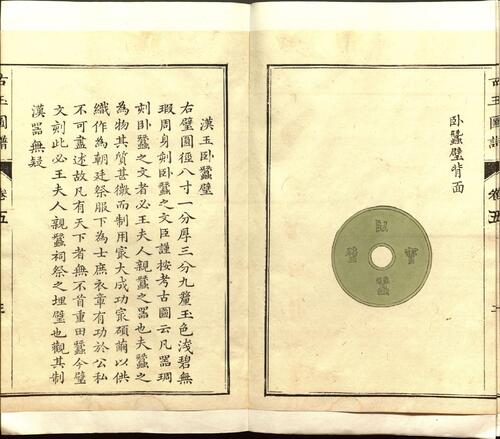 古玉圖譜
卷五
臥蠶璧背面
漢玉臥蠶璧
右璧圓徑八寸一分厚三分九釐玉色淺碧無
瑕周身刻臥蠶之文臣謹按考古圖云凡器琱
刻臥蠶之文者必王夫人親蠶之器也夫蠶之
為物其質甚微而制用㝡大成功㝡碩繭以供
織作為朝廷祭服下為士庶衣章有功於公私
不可盡述故凡有天下者無不首重田蠶今璧
文刻此必王夫人親蠶祠祭之埋璧也觀其制
漢器無疑
古玉圖譜
卷五